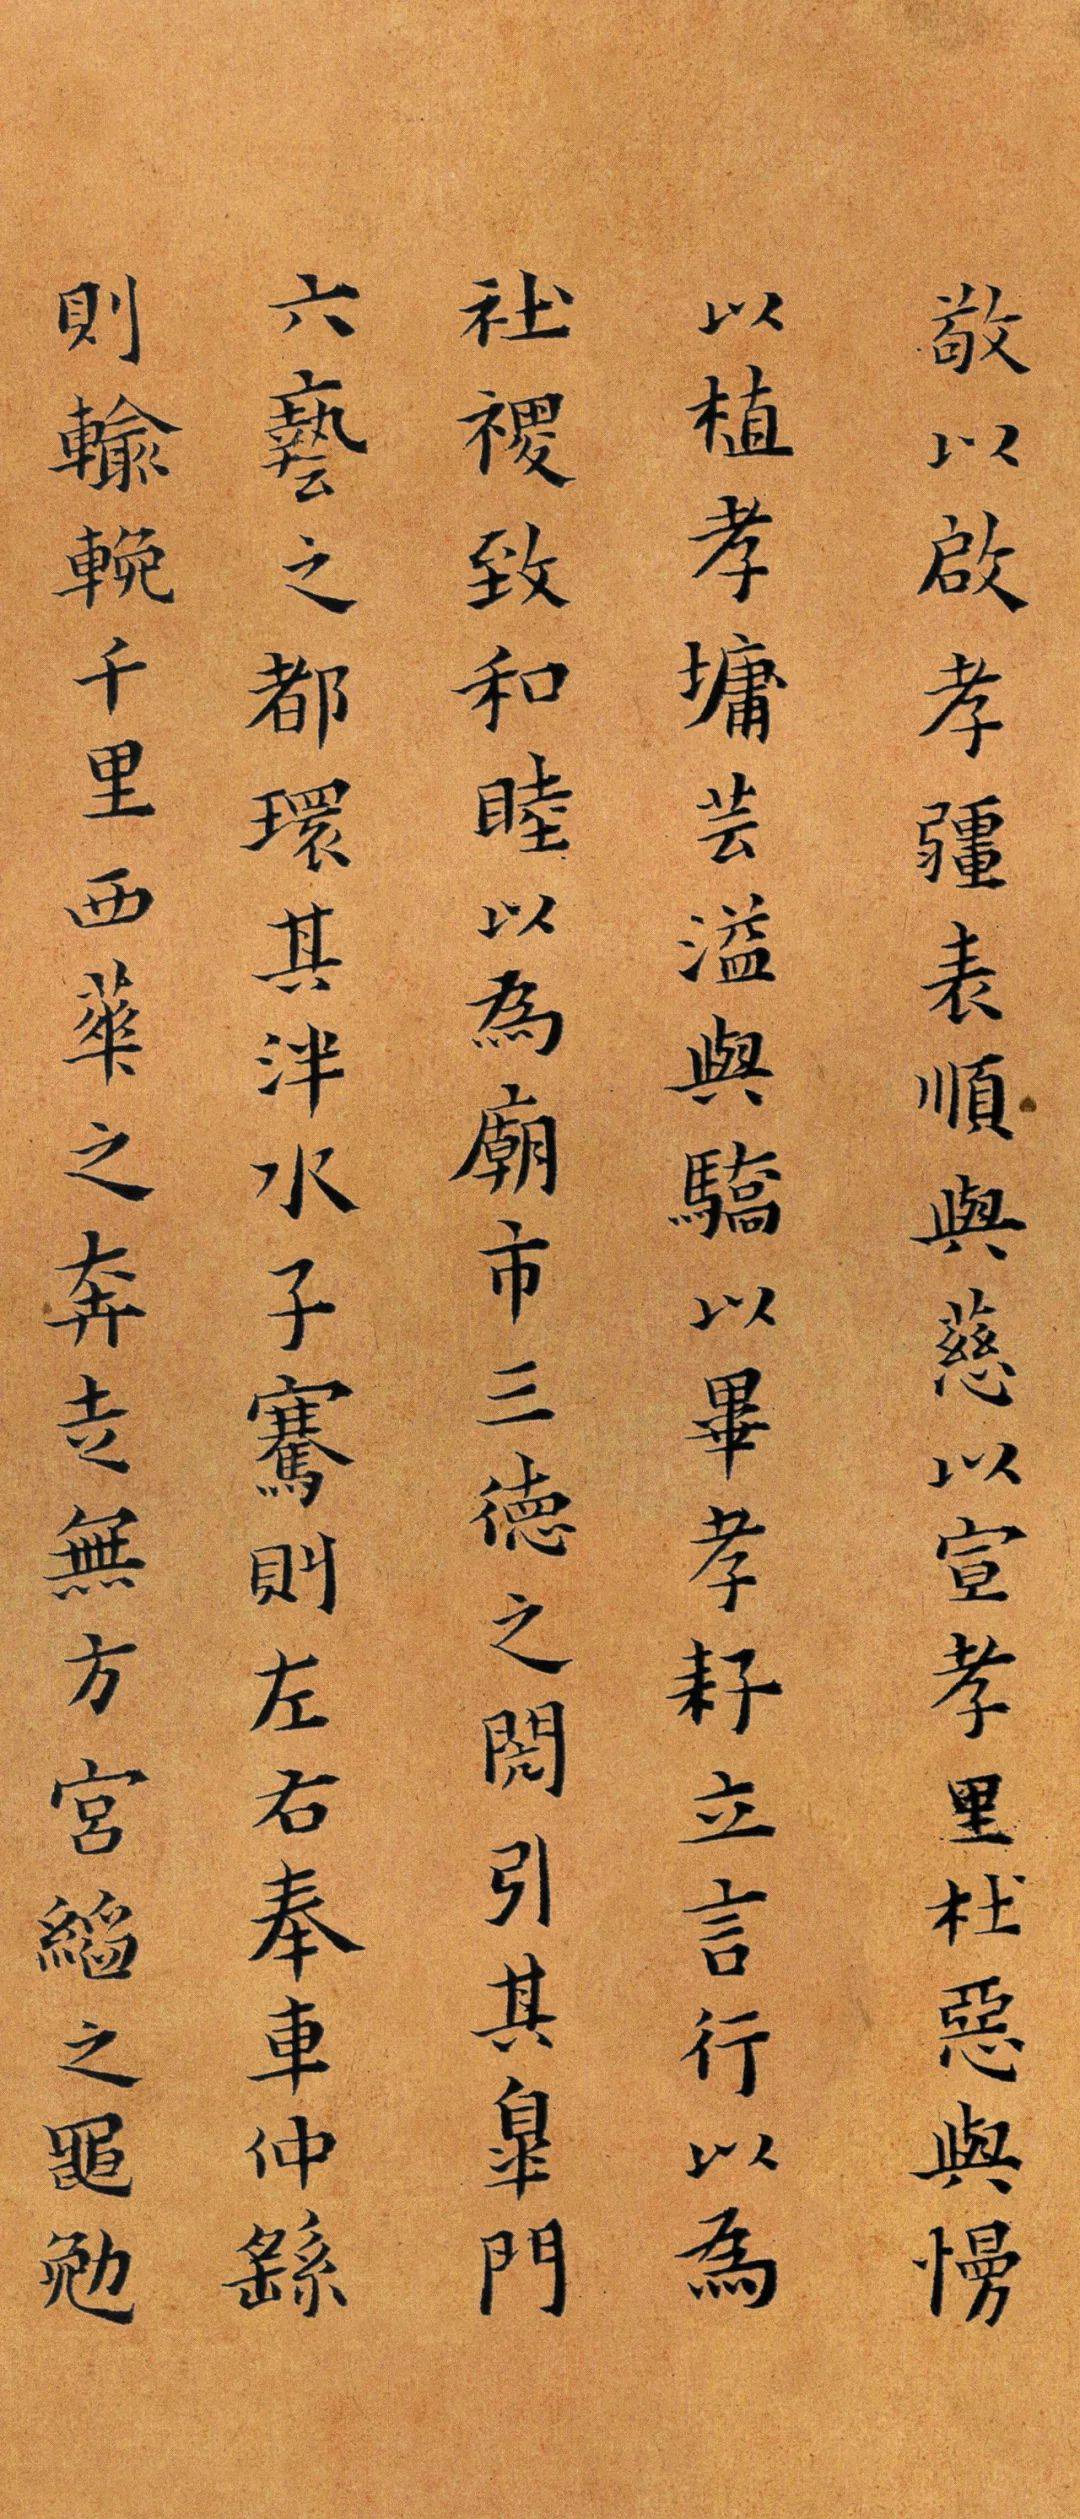 敬以啟孝疆表順與慈以宣孝里杜惡與慢
以植孝墉芸溢與驕以畢孝耔立言行以為
社稷致和睦以為廟市三德之閌引其皐門
六藝之都環其泮水子騫則左右奉車仲繇
則輸輓千里西華之奔走無方宮縚之黽勉